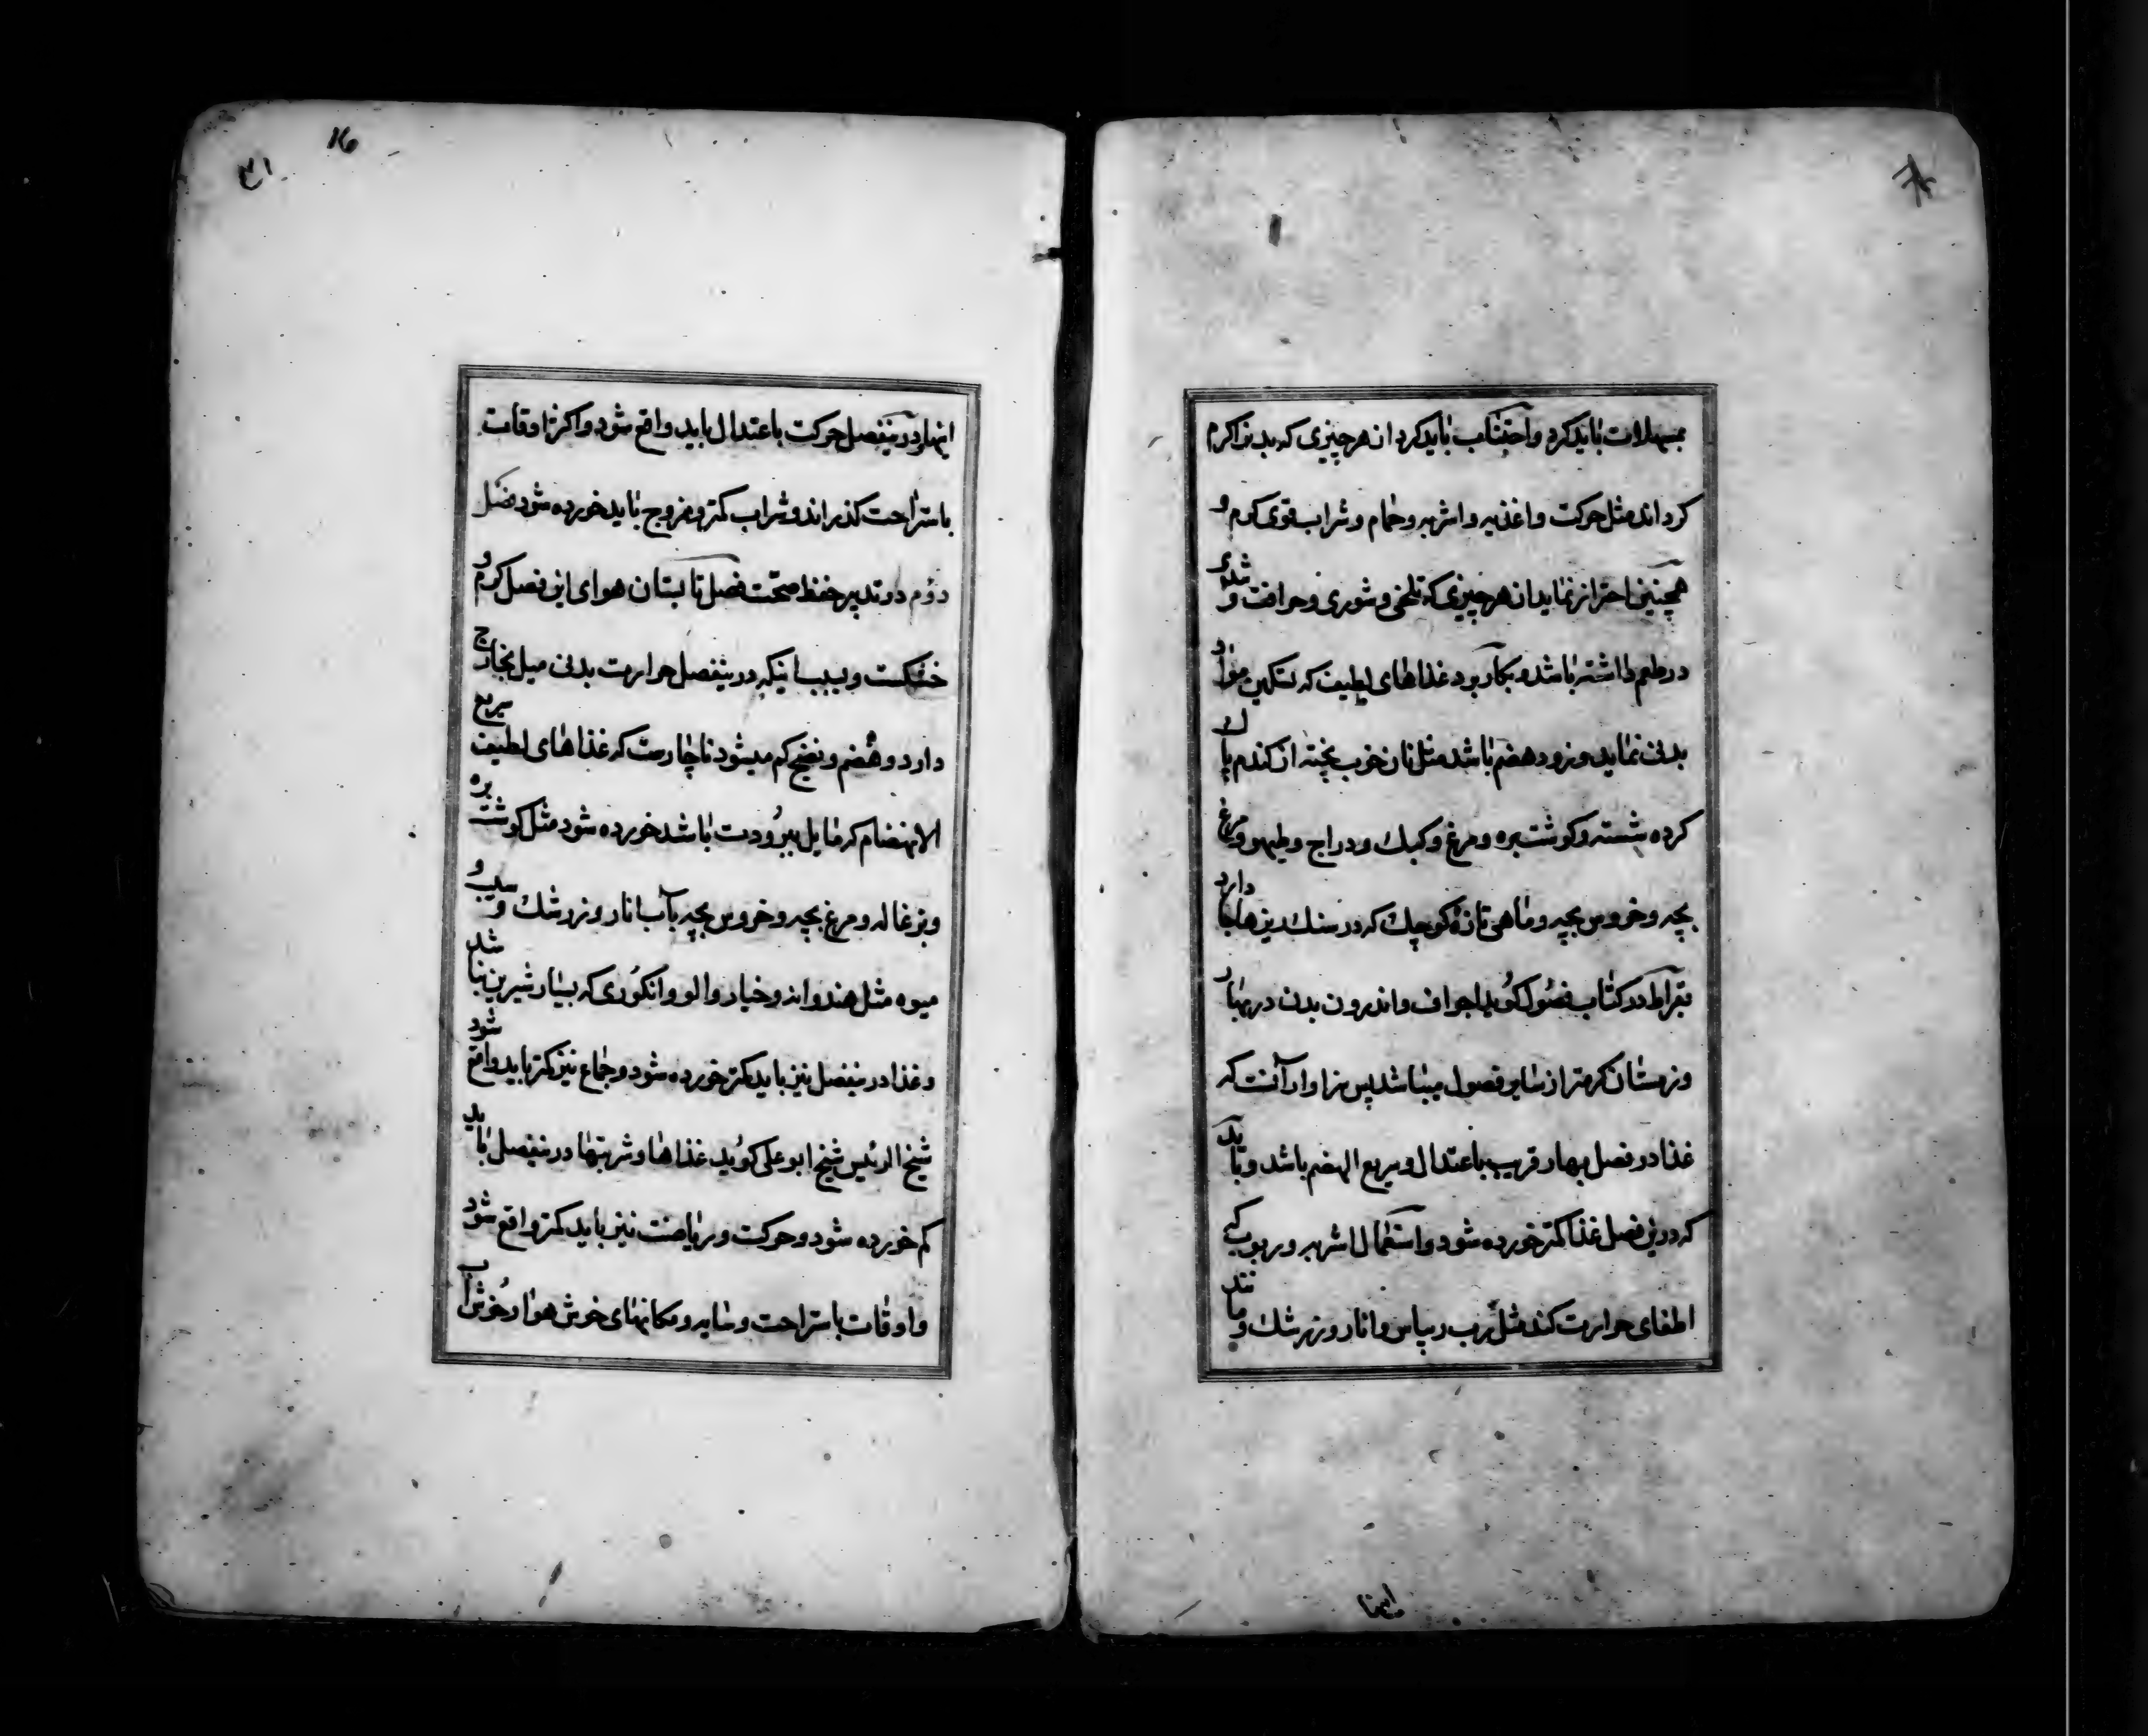 بمسهلات باید کرد و اجتناب باید کرد از هر چیزی که بدنرا کرم
کرداند مثل حرکت و اغذیه و اشربه و حمام و شراب قوی کرم و
همچنین احتراز نماید از هر چیزی که تلخی و شوری و حرافت و شدی
در طعم داشته باشد و بکار برد غذاهای لطیف که تسکین مواد
بدنی نماید و زود هضم باشد مثل نان خوب پخته از کندم پاک
کرده شسته و کوشت بره و مرغ و کبک و دراج و طیهو و مرغ
بچه و خروس بچه و ماهی تازهٔ کوچک که در سنک ریزها جا دارد
بقراط در کتاب فصول کوید اجواف و اندرون بدن در بهار
و زمستان کرمتر از سایر فصول میباشد پس سزاوار آنست که
غذا در فصل بهار قریب باعتدال و سریع الهضم باشد و باید
که درین فصل غذا کمتر خورده شود و استعمال اشربه و ربوب کی
اطفای حرارت کند مثل رب ریباس و انار و زرشک و مانند
اینها
۳۱
16
اینها و درینفصل حرکت باعتدال باید واقع شود و اکثر اوقات
باستراحت کذراند و شراب کمتر و ممزوج باید خورده شود فصل
دوم در تدبیر حفظ صحّت فصل تابستان هوای این فصل کرم و
خشکست و بسبب اینکه درینفصل حرارت بدنی میل بخارج
دارد و هضم و نضج کم میشود ناچارست که غذاهای لطیف سریع
الانهضام که مایل ببرودت باشد خورده شود مثل کوشت بره
و بزغاله و مرغ بچه و خروس بچه بآب انار و زرشک و سیب و
میوه مثل هندوانه و خیار و الو و انکوری که بسیار شیرین نباشد
و غذا درینفصل نیز باید کمتر خورده شود و جماع نیز کمتر باید واقع شود
شیخ الرئیس شیخ ابو علی کوید غذاها و شربتها درینفصل باید
کم خورده شود و حرکت و ریاضت نیز باید کمتر واقع شود
و اوقات باستراحت و سایه و مکانهای خوش هوا و خوش آب